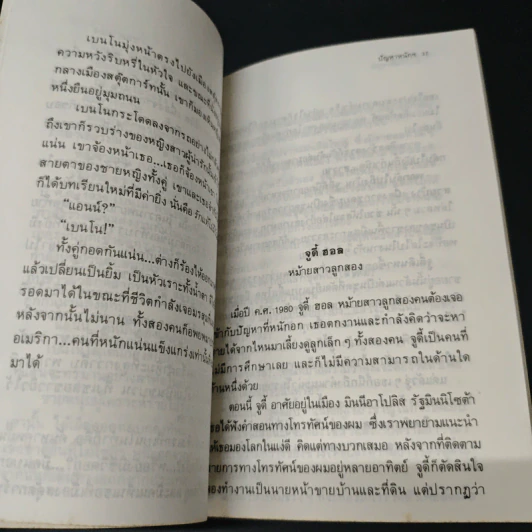 เบนโนมุ่งหน้าตรงไปยัง
ความหวังริบหรี่ในหัวใจ และขณะที่
กลางเมืองสตุ๊ตการ์ทนั้น เขา
หนึ่งยืนอยู่มุมถนน
เบนโนกระโดดลงจากรถอย่าง
ถึงเขาก็รวบร่างของหญิงสาวผู้น่ารัก
แน่น เขาจ้องหน้าเธอ...เธอก็จ้องหน้า
สายตาของชายหญิงทั้งคู่ เขาและเธอ
ก็ได้บทเรียนใหม่ที่มีค่ายิ่ง นั่นคือรักแท้
"แอนน์?"
"เบนโน!"
ทั้งคู่กอดกันแน่น...ต่างก็ร้องไห้
แล้วเปลี่ยนเป็นยิ้ม เป็นหัวเราะทั้งน้ำตา
รอดมาได้ในขณะที่ชีวิตกำลังเจอมรสุม
หลังจากนั้นไม่นาน ทั้งสองคนก็อพยพ
อเมริกา...คนที่หนักแน่นแข็งแกร่งเท่านั้น
มาได้
ปัญหาหนัก
จูดี้ ฮอล
หม้ายสาวลูกสอง
เมื่อปี ค.ศ. 1980 จูดี้ ฮอล หม้ายสาวลูกสองคนต้องเจอ
เข้ากับปัญหาที่หนักอก เธอตกงานและกำลังคิดว่าจะหา
รายได้จากไหนมาเลี้ยงดูลูกเล็ก ๆ ทั้งสองคน จูดี้เป็นคนที่
ไม่มีการศึกษาเลย และก็ไม่มีความสามารถในด้านใด
ด้านหนึ่งด้วย
ตอนนี้ จูดี้ อาศัยอยู่ในเมือง มินนีอาโปลิส รัฐมินนิโซต้า
เธอได้ฟังคำสอนทางโทรทัศน์ของผม ซึ่งเราพยายามแนะนำ
ให้เธอมองโลกในแง่ดี คิดแต่ทางบวกเสมอ หลังจากที่ติดตาม
รายการทางโทรทัศน์ของผมอยู่หลายอาทิตย์ จูดี้ก็ตัดสินใจ
ลองทำงานเป็นนายหน้าขายบ้านและที่ดิน แต่ปรากฏว่า